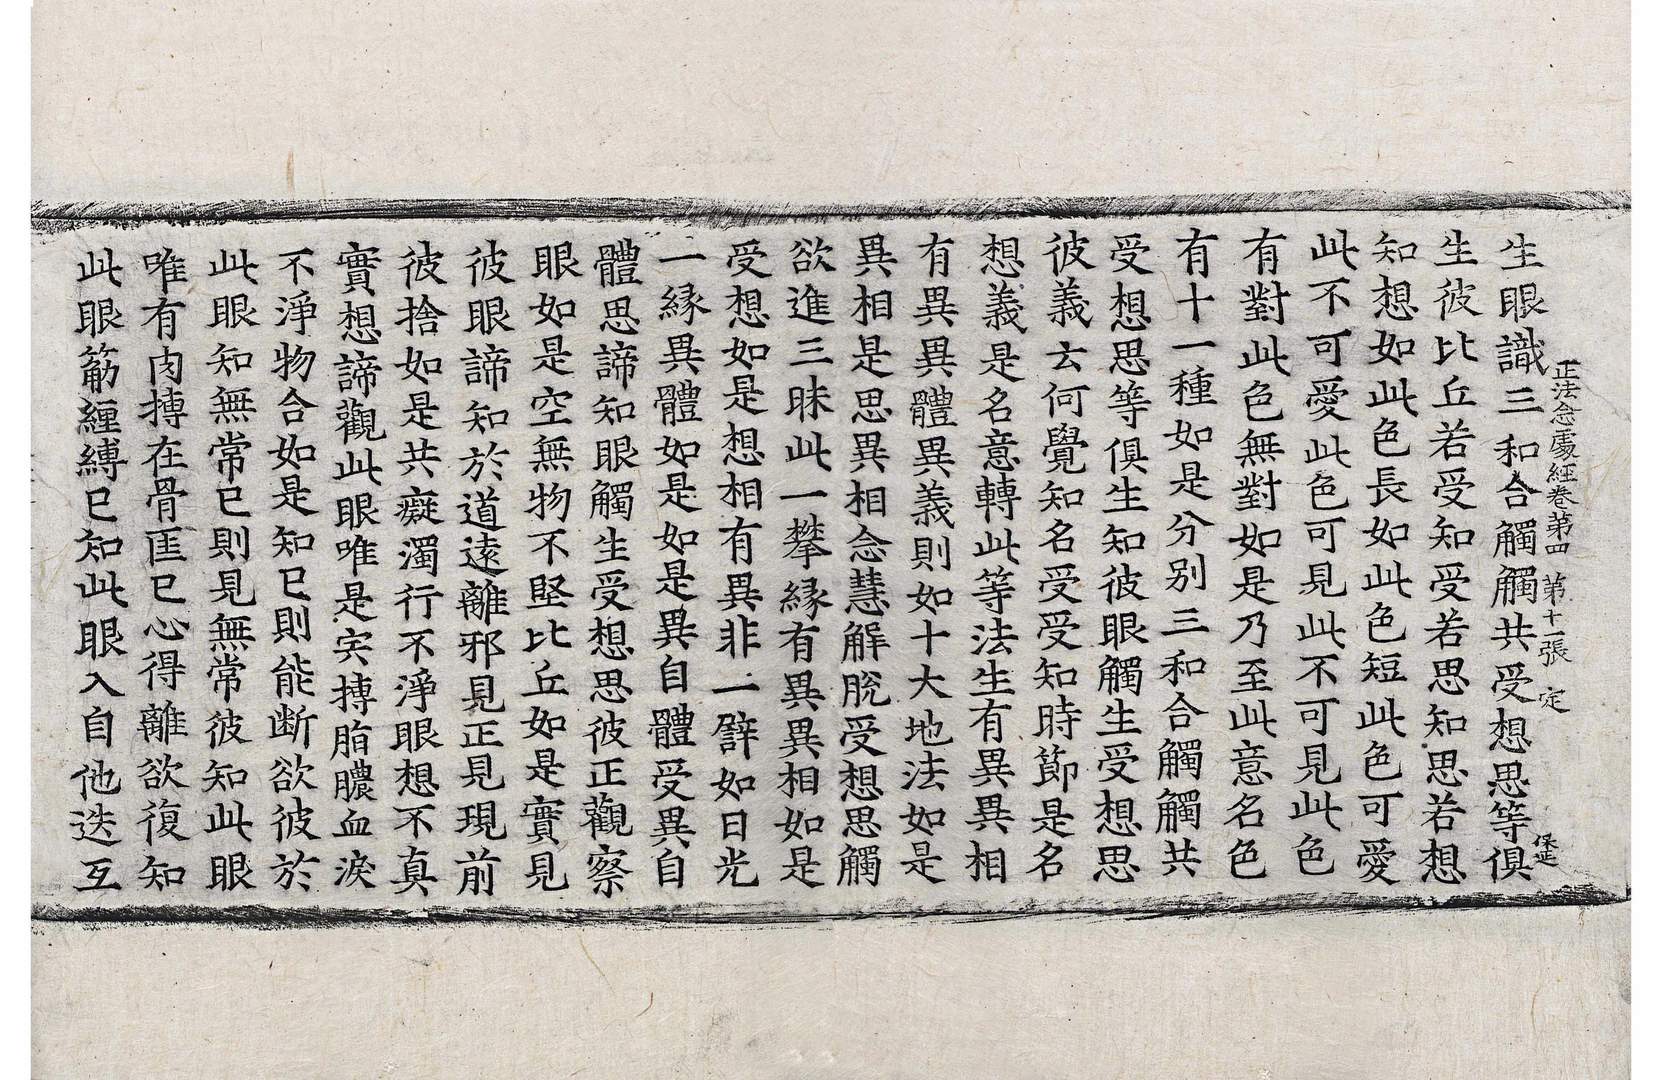 正法念處經卷第四 第十一張 定
生眼識三和合觸觸共受想思等俱
保正
生彼比丘若受知受若思知思若想
知想如此色長如此色短此色可愛
此不可愛此色可見此不可見此色
有對此色無對如是乃至此意名色
有十一種如是分別三和合觸觸共
受想思等俱生知彼眼觸生受想思
彼義云何覺知名受受知時節是名
想義是名意轉此等法生有異異相
有異異體異義則如十大地法如是
異相是思異相念慧解脫受想思觸
欲進三昧此一攀緣有異異相如是
受想如是想相有異非一譬如日光
一緣異體如是如是異自體受異自
體思諦知眼觸生受想思彼正觀察
眼如是空無物不堅比丘如是實見
彼眼諦知於道遠離邪見正見現前
彼捨如是共癡濁行不淨眼想不真
實想諦觀此眼唯是宍搏脂膿血淚
不淨物合如是知已則能断欲彼於
此眼知無常已則見無常彼知此眼
唯有肉搏在骨匡已心得離欲復知
此眼筋纏縛已知此眼入自他迭互